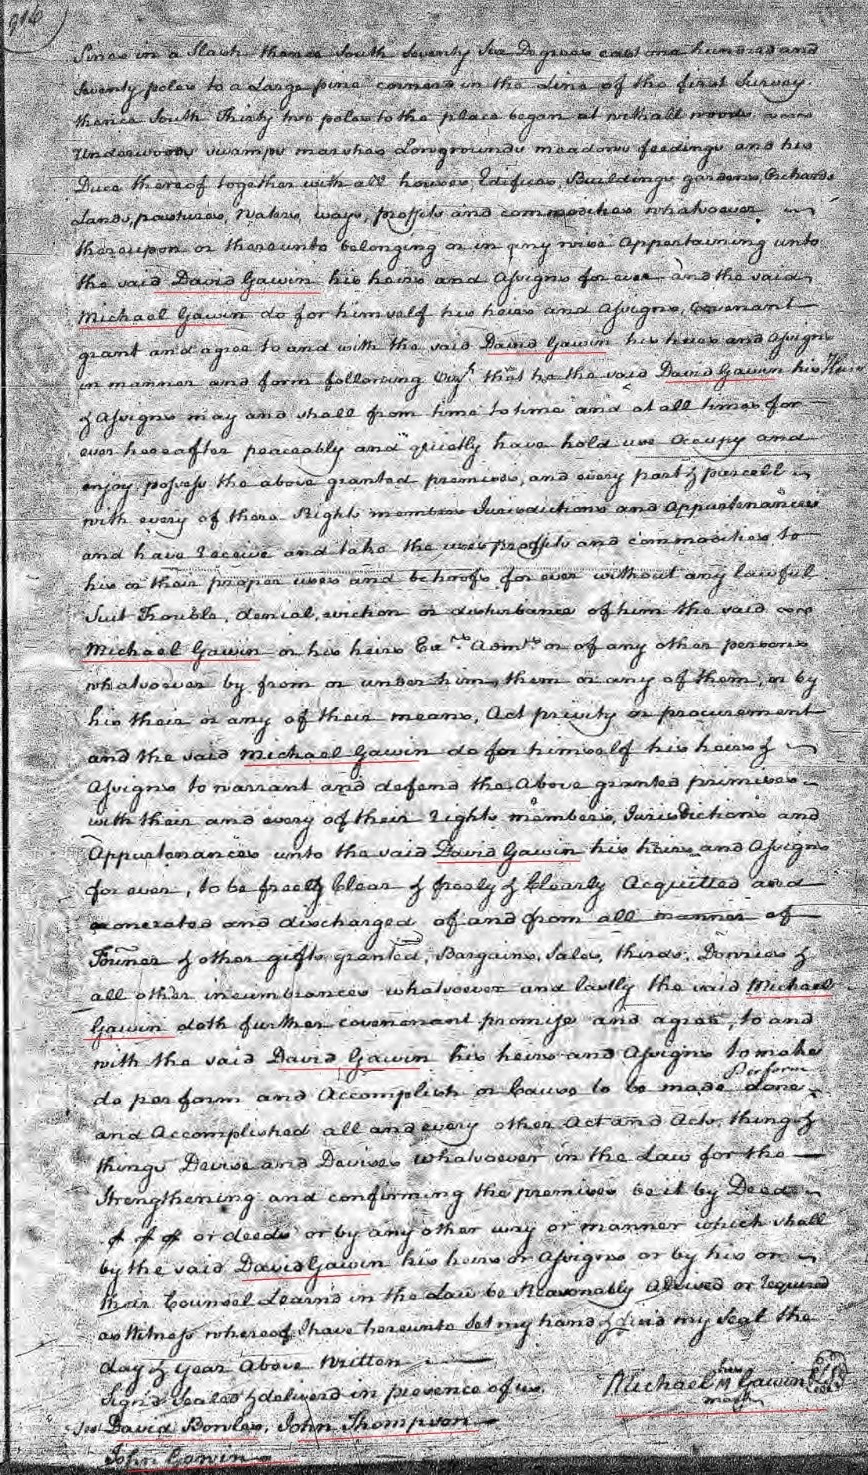 916
Pines in a Slash thence South Seventy Six Degrees east one hundred and
Seventy poles to a Large pine corners in the Line of the first Survey
thence South Thirty two poles to the place began at with all woods
Underwoods swamps marshes Lowgrounds meadows feedings and his
Duce thereof together with all houses, Edifices, Buildings gardens, Orchards
Lands, pastures, Waters, ways, proffits and commodities whatsoever
thereupon or thereunto belonging or in any wise Appertaining unto
the said David Gawin his heirs and Assigns for ever and the said
Michael Gawin do for himself his heirs and Assigns, Covenant
grant and agree to and with the said David Gawin his heirs and Assigns
in manner and form following Vizt. that he the said David Gawin his Heirs
& Assigns may and shall from time to time and at all times for
ever hereafter peaceably and quietly have hold use Occupy and
enjoy possess the above granted premises, and every part & parcell
with every of there Rights members Jurisdictions and Appurtenances
and have Receive and take the uses proffits and commodities to
his or their proper uses and behoofs for ever without any lawful
Suit Trouble, denial, eviction or disturbance of him the said
Michael Gawin or his heirs Exrs. Admrs or of any other persons
whatsoever by from or under him, them or any of them, or by
his their or any of their means, Act privity or procurement
and the said Michael Gawin do for himself his heirs &
Assigns to warrant and defend the Above granted primises
with their and every of their Rights members, Jurisdictions and
Appurtenances unto the said David Gawin his heirs and Assigns
for ever, to be freely Clear & freely & Clearly Acquitted and
exonerated and discharged of and from all manner of
Former & other gifts granted, Bargains, Sales, thirds, Dowries &
all other incumbrances whatsoever and lastly the said Michael
Gawin doth further covenant promise and agree, to and
with the said David Gawin his heirs and Assigns to make
Perform
do perform and Accomplish or Cause to be made done
and Accomplished all and every other Act and Acts, thing &
things Devise and Devises whatsoever in the Law for the
Strengthening and confirming the premises be it by Deed
or deeds or by any other way or manner which shall
by the said David Gawin his heirs or Assigns or by his or
their Counsel Learn'd in the Law be Reasonably Advised or Required
as Witness whereof I have hereunto Set my hand & my Seal the
day & year Above Written
Sign'd Sealed & deliverd in presence of us.
his
Michael M Gawin
mark
David Bowles, John Thompson
John Gowin